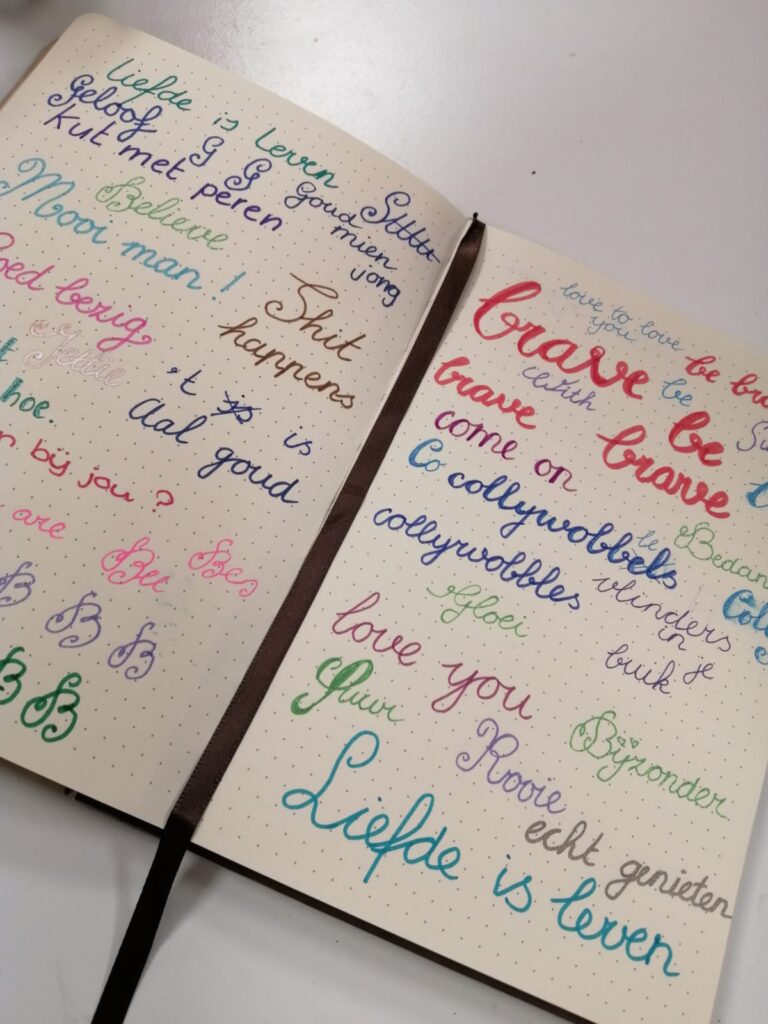 Liefde is leven
Geloof G G Goud Stttt
kut met peren mien
Believe jong
Mooi man !
oed bezig Shit
Jettie happens
't is
hoe. Aal goud
bij jou ?
are Be Bes
B B B
B B
love to love
you
brave be
with be
brave be
come on brave
Co collywobbels
te Bedan
collywobbles
vlinders
in
Gloei buik je
love you
Puur Bijzonder
Rooie
Liefde is leven
echt genieten